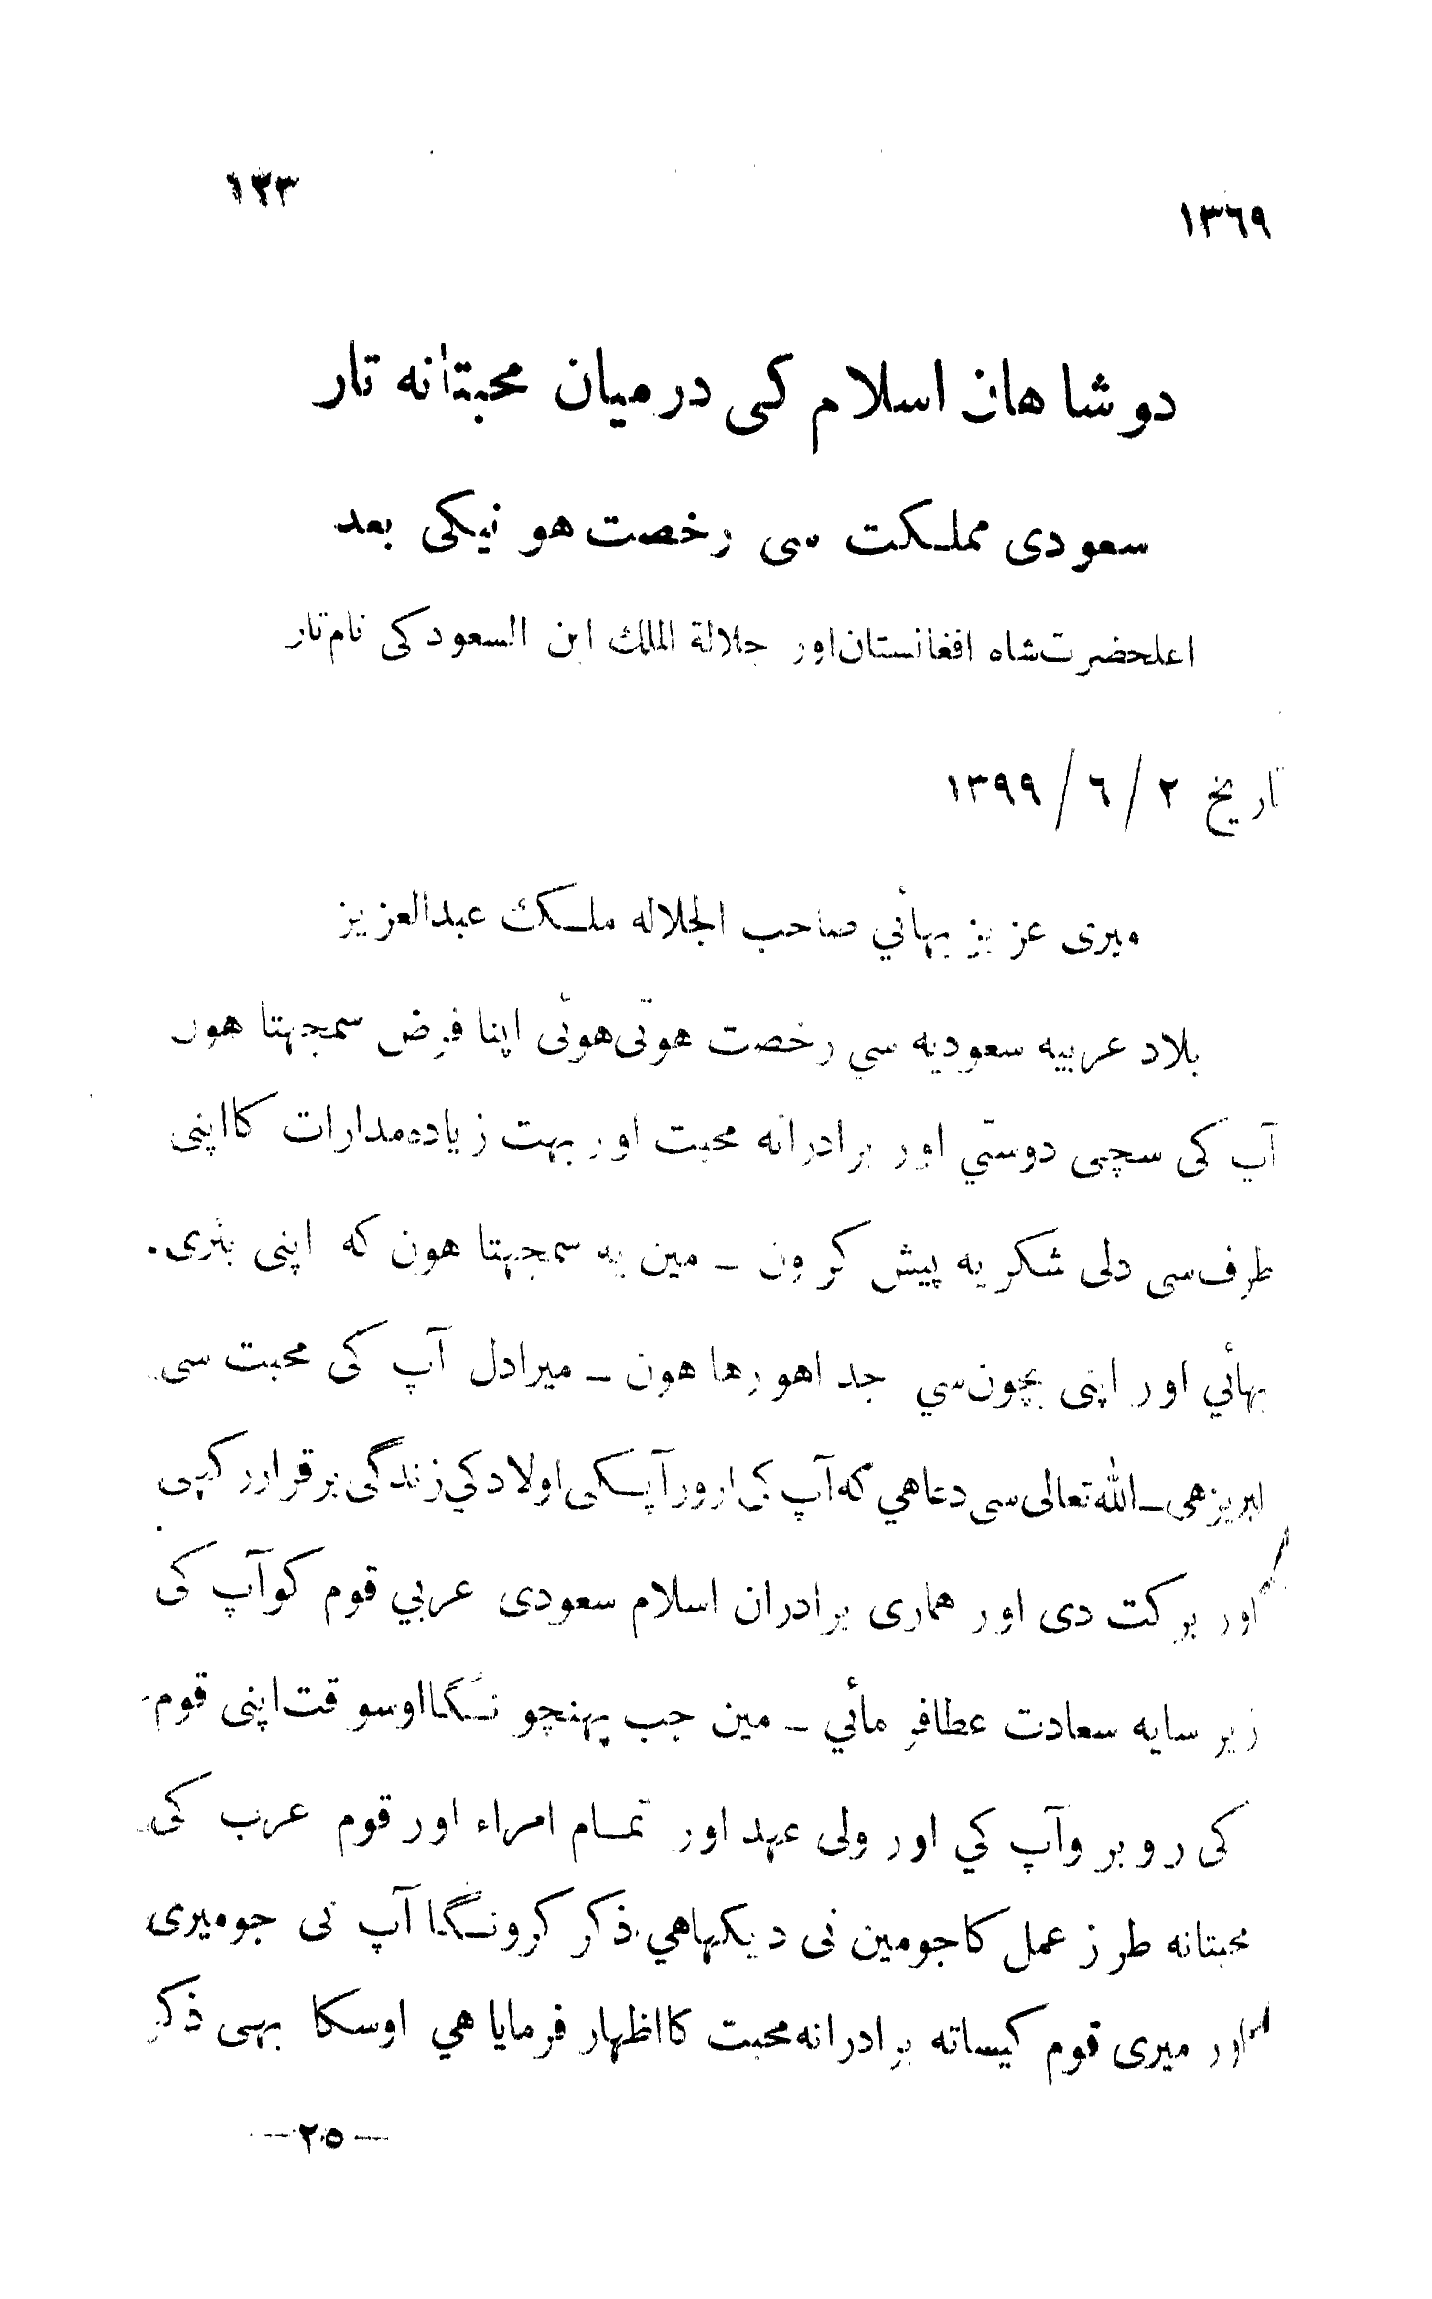 ١٢٣
١٣٦٩
دو شاهان اسلام کی درمیان محبتانه تار
سعودی مملکت سی رخصت هو نیکی بعد
اعلحضرت شاه افغانستان اور جلالة الملك ابن السعود کی نام تار
تاریخ ٢ / ٦ / ١٣٩٩
میری عزیز بهائي صاحب الجلاله ملك عبدالعزیز
بلاد عربیه سعودیه سي رخصت هوتی هوئی اپنا فرض سمجهتا هون
آپ کی سچی دوستي اور برادرانه محبت اور بهت زیاده مدارات کا اپنی
طرف سی دلی شکریه پیش کرون ـ مین یه سمجهتا هون که اپنی بڑی
بهائي اور اپنی بچون سي جدا هو رها هون ـ میرا دل آپ کی محبت سی
لبریز هی ـ الله تعالی سی دعا هي که آپ کی ارور آپکی اولاد کي زندگی برقرار رکهی
اور برکت دی اور هماری برادران اسلام سعودی عربي قوم کو آپ کی
زیر سایه سعادت عطا فرمائي ـ مین جب پهنچونگا اوسوقت اپنی قوم
کی روبرو آپ کي اور ولی عهد اور تمام امراء اور قوم عرب کی
محبتانه طرز عمل کا جو مین نی دیکها هي ذکر کرونگا آپ نی جو میری
اور میری قوم کیساته برادرانه محبت کا اظهار فرمایا هي اوسکا بهی ذکر
—٢٥—